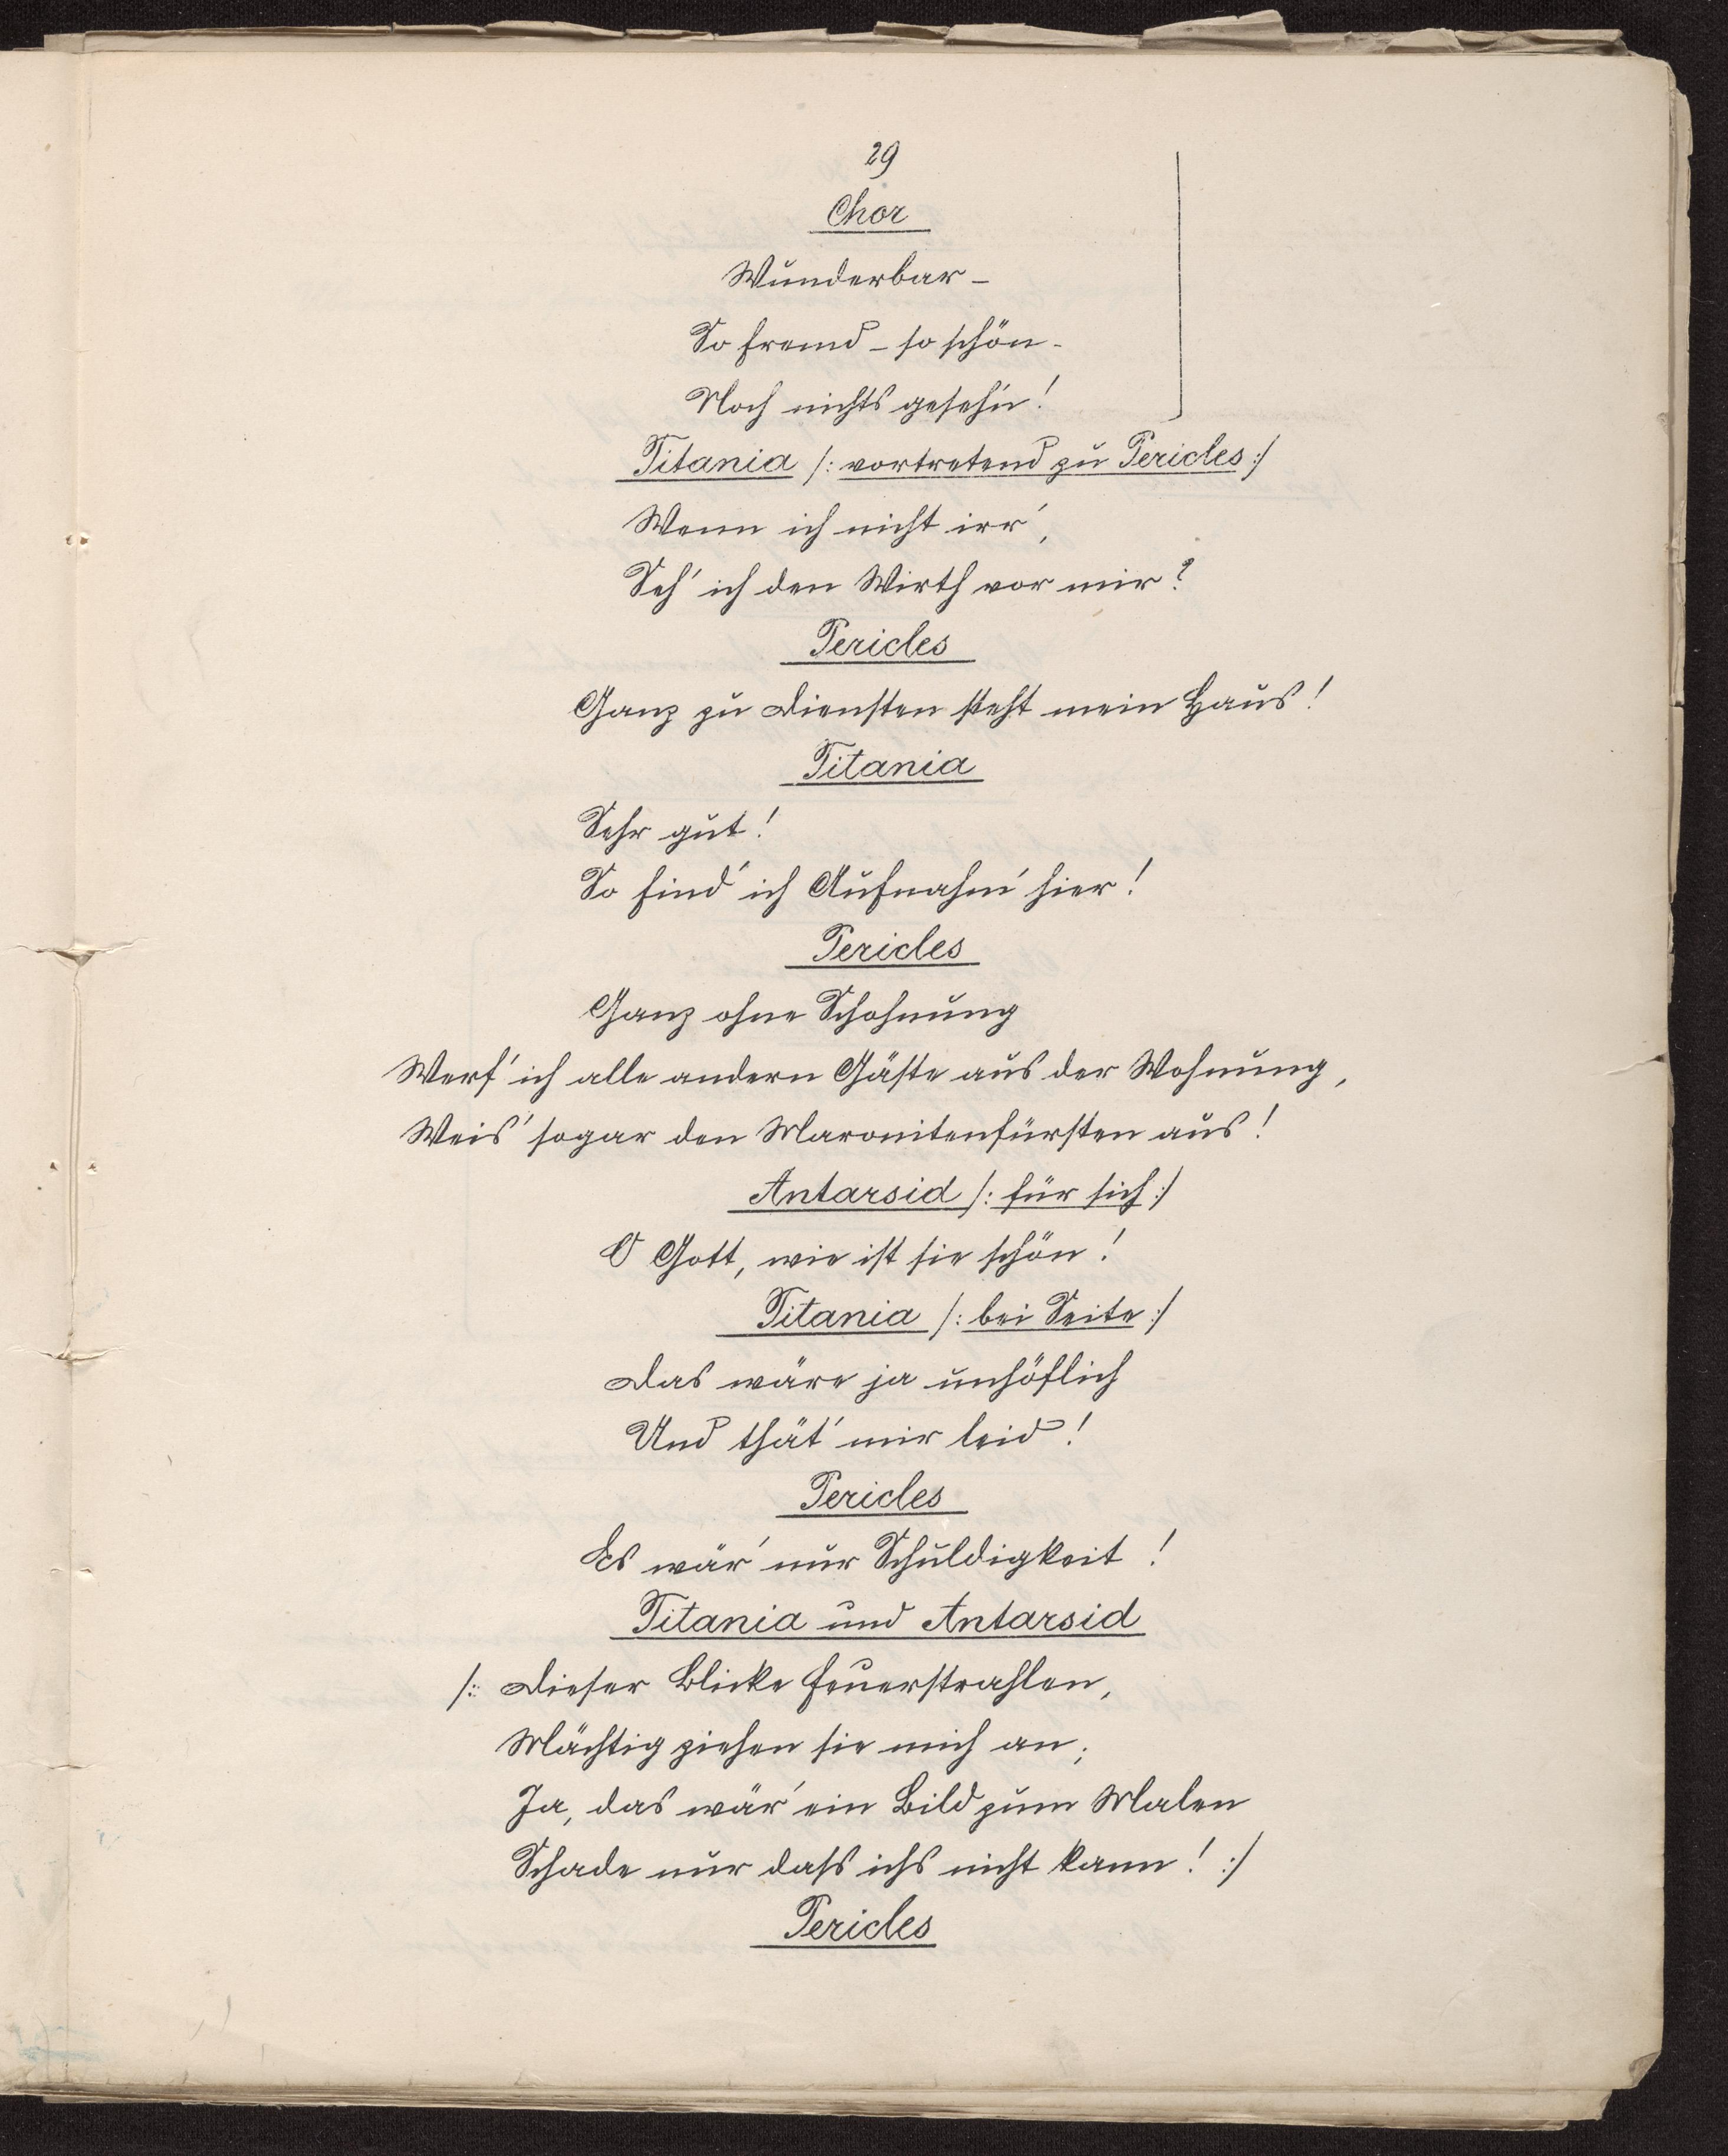 29
Chor
Wunderbar –
So fremd – so schön –
Noch nichts geseh'n!
Titania /: vortretend zu Pericles :/
Wenn ich nicht irr',
Seh' ich den Wirth vor mir?
Pericles
Ganz zu Diensten steht mein Haus!
Titania
Sehr gut!
So find' ich Aufnahm' hier!
Pericles
Ganz ohne Schohnung
Werf' ich alle andern Gäste aus der Wohnung,
Weis' sogar den Maronitenfürsten aus!
Antarsid /: für sich :/
O Gott, wie ist sie schön!
Titania /: bei Seite :/
Das wäre ja unhöflich
Und thät' mir leid!
Pericles
Es wär' nur Schuldigkeit!
Titania und Antarsid
/: Dieser Blicke Feuerstrahlen,
Mächtig ziehen sie mich an;
Ja, das wär' ein Bild zum Malen
Schade nur dass ichs nicht kann! :/
Pericles